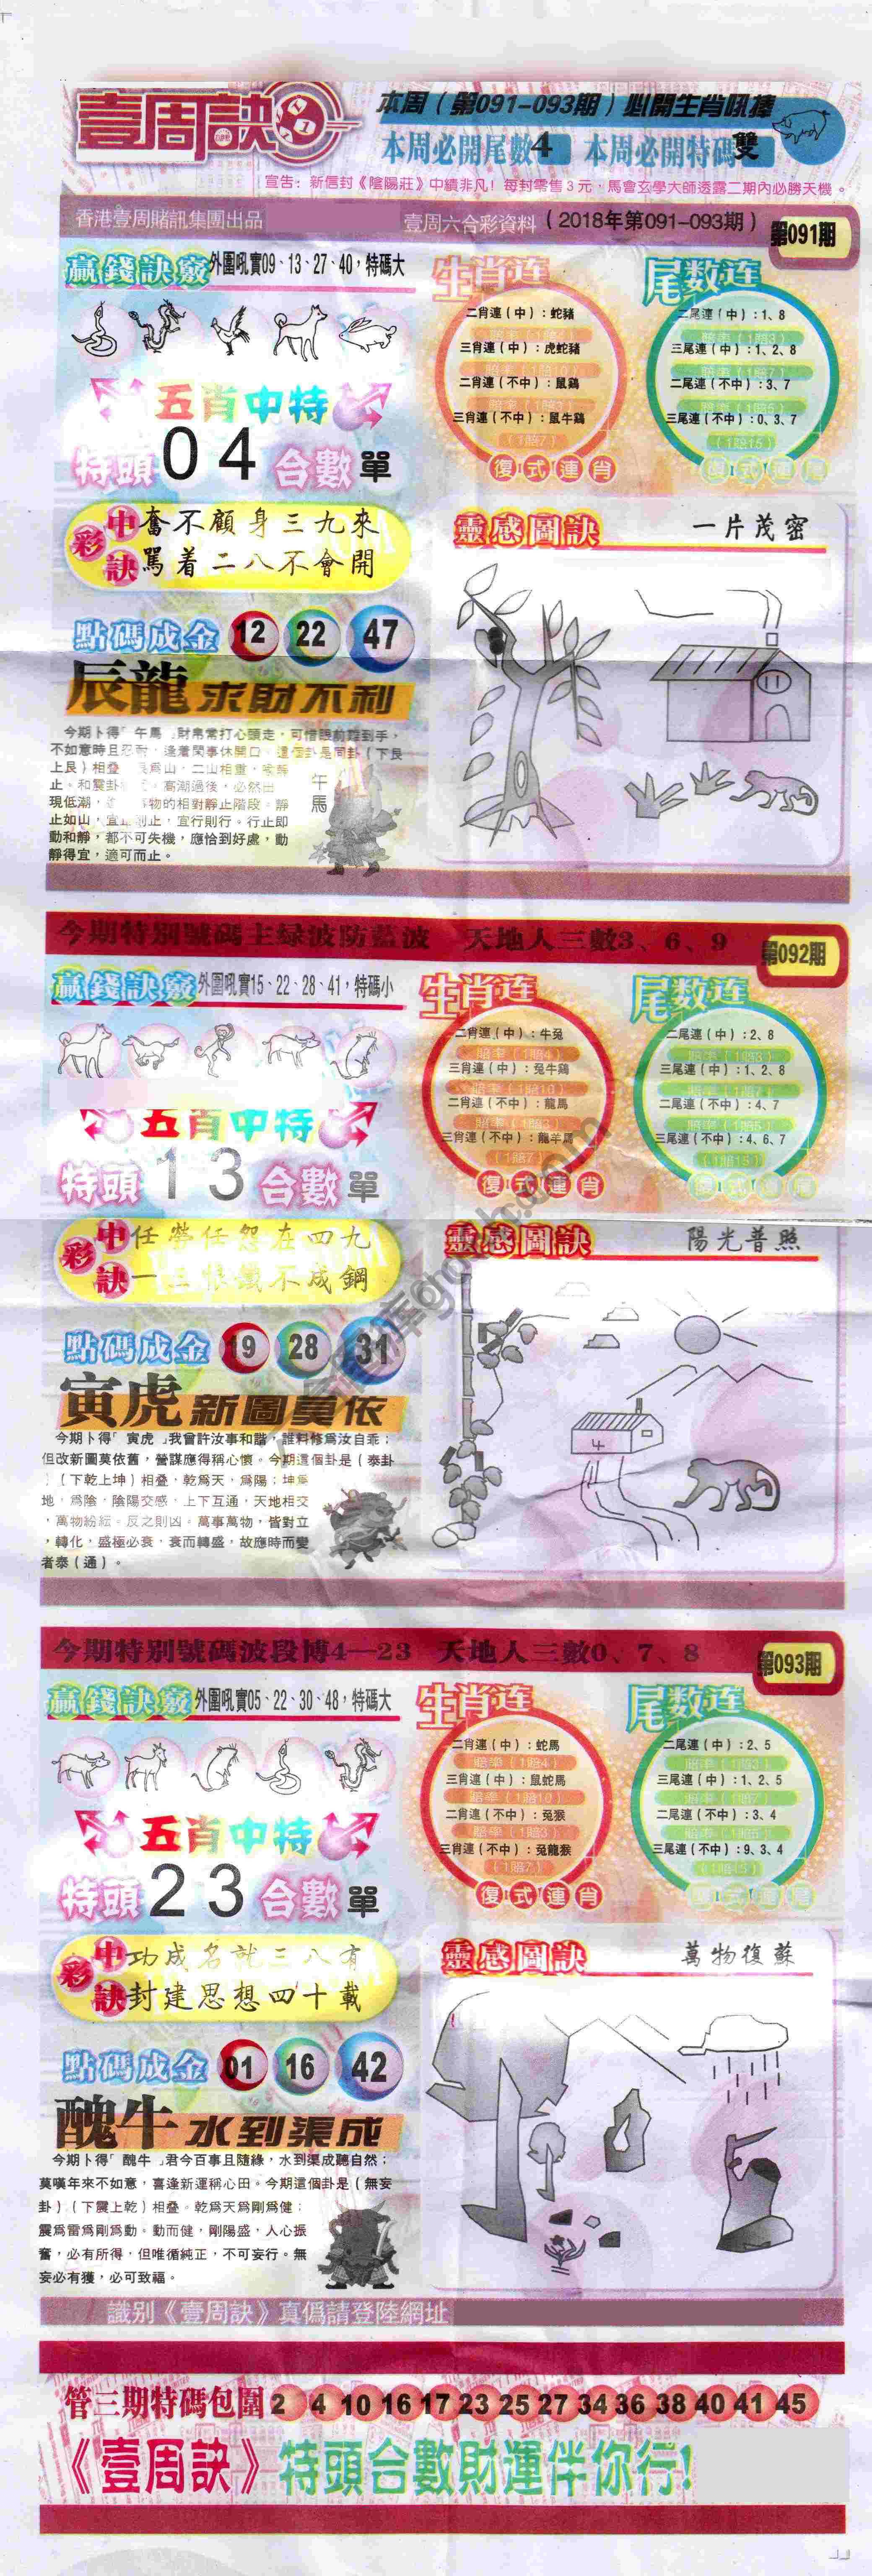 壹周訣
本周（第091-093期）必開生肖吼豬
本周必開尾數4 本周必開特碼雙
宣告：新信封《陰陽莊》中績非凡！每封零售3元，馬會玄學大師透露二期內必勝天機。
香港壹周賭訊集團出品
壹周六合彩資料（2018年第091-093期）
第091期
贏錢訣竅 外圍吼實09、13、27、40，特碼大
五肖中特
特頭04合數單
中彩訣
奮不顧身三九來
罵着二八不會開
點碼成金 12 22 47
辰龍求財不利
今期卜得「午馬」財帛常打心頭走，可惜眼前難到手，
不如意時且忍耐，逢着閑事休開口。這個卦是同卦（下艮
上艮）相疊
現低潮，
止如山，宜止則止，宜行則行。行止即
動和靜，都不可失機，應恰到好處，動
靜得宜，適可而止。
午馬
生肖连
二肖連（中）：蛇豬
賠率（1賠4）
三肖連（中）：虎蛇豬
賠率（1賠10）
二肖連（不中）：鼠鷄
賠率（1賠3）
三肖連（不中）：鼠牛鷄
（1賠7）
復式連肖
尾数连
二尾連（中）：1、8
賠率（1賠3）
三尾連（中）：1、2、8
賠率（1賠7）
二尾連（不中）：3、7
賠率（1賠5）
三尾連（不中）：0、3、7
（1賠15）
復式連尾
靈感圖訣 一片茂密
今期特别號碼主绿波防藍波 天地人三數3、6、9
第092期
贏錢訣竅 外圍吼實15、22、28、41，特碼小
五肖中特
特頭13合數單
中彩訣
任勞任怨在四九
不成鋼
點碼成金 19 28 31
寅虎新圖莫依
今期卜得「寅虎」我曾許汝事和諧，誰料修爲汝自乖；
但改新圖莫依舊，營謀應得稱心懷。今期這個卦是（泰卦
）（下乾上坤）相疊，乾爲天，爲陽；坤爲
地，爲陰，陰陽交感，上下互通，天地相交
，萬物紛紜。反之則凶。萬事萬物，皆對立
，轉化，盛極必衰，衰而轉盛，故應時而變
者泰（通）。
生肖连
二肖連（中）：牛兔
賠率（1賠4）
三肖連（中）：兔牛鷄
賠率（1賠10）
二肖連（不中）：龍馬
賠率（1賠3）
三肖連（不中）：龍羊馬
（1賠7）
復式連肖
尾数连
二尾連（中）：2、8
賠率（1賠3）
三尾連（中）：1、2、8
賠率（1賠7）
二尾連（不中）：4、7
賠率（1賠5）
三尾連（不中）：4、6、7
（1賠15）
復式連尾
靈感圖訣 陽光普照
4
今期特别號碼波段博4—23 天地人三數0、7、8
第093期
贏錢訣竅 外圍吼實05、22、30、48，特碼大
五肖中特
特頭23合數單
中彩訣
功成名就三八有
封建思想四十載
點碼成金 01 16 42
醜牛水到渠成
今期卜得「醜牛」君今百事且隨緣，水到渠成聽自然；
莫嘆年來不如意，喜逢新運稱心田。今期這個卦是（無妄
卦）（下震上乾）相疊。乾爲天爲剛爲健；
震爲雷爲剛爲動。動而健，剛陽盛，人心振
奮，必有所得，但唯循純正，不可妄行。無
妄必有獲，必可致福。
生肖连
二肖連（中）：蛇馬
賠率（1賠4）
三肖連（中）：鼠蛇馬
賠率（1賠10）
二肖連（不中）：兔猴
賠率（1賠3）
三肖連（不中）：兔龍猴
（1賠7）
復式連肖
尾数连
二尾連（中）：2、5
賠率（1賠3）
三尾連（中）：1、2、5
賠率（1賠7）
二尾連（不中）：3、4
賠率（1賠5）
三尾連（不中）：9、3、4
（1賠15）
復式連尾
靈感圖訣 萬物復蘇
識别《壹周訣》真僞請登陸網址
管三期特碼包圍 2 4 10 16 17 23 25 27 34 36 38 40 41 45
《壹周訣》特頭合數財運伴你行!